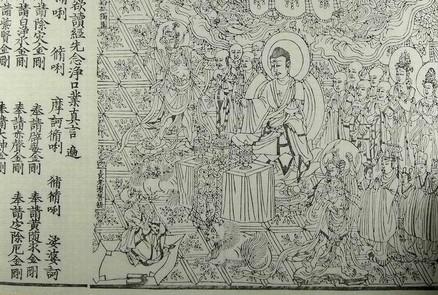 欲讀經先念淨口業真言 遍
唎 脩唎 摩訶脩唎 脩脩唎 娑婆訶
請除灾金剛 奉請辟毒金剛 奉請黃隨求金剛
請白淨水金剛 奉請赤聲金剛 奉請定除厄金剛
請紫賢金剛 奉請大神金剛